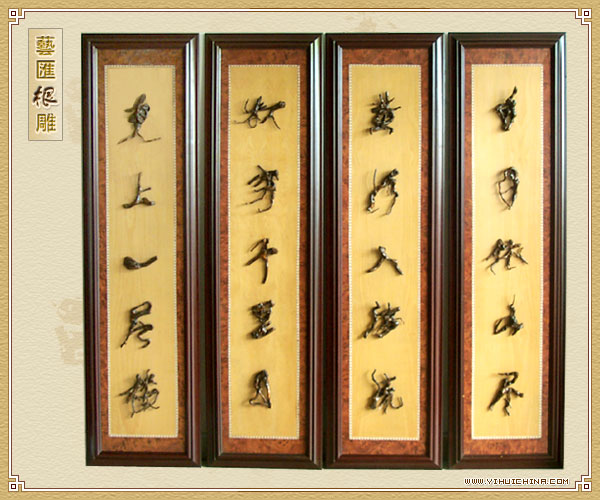 藝匯根雕
白日依山尽
黄河入海流
欲穷千里目
更上一层楼
WWW.YIHUICHINA.COM